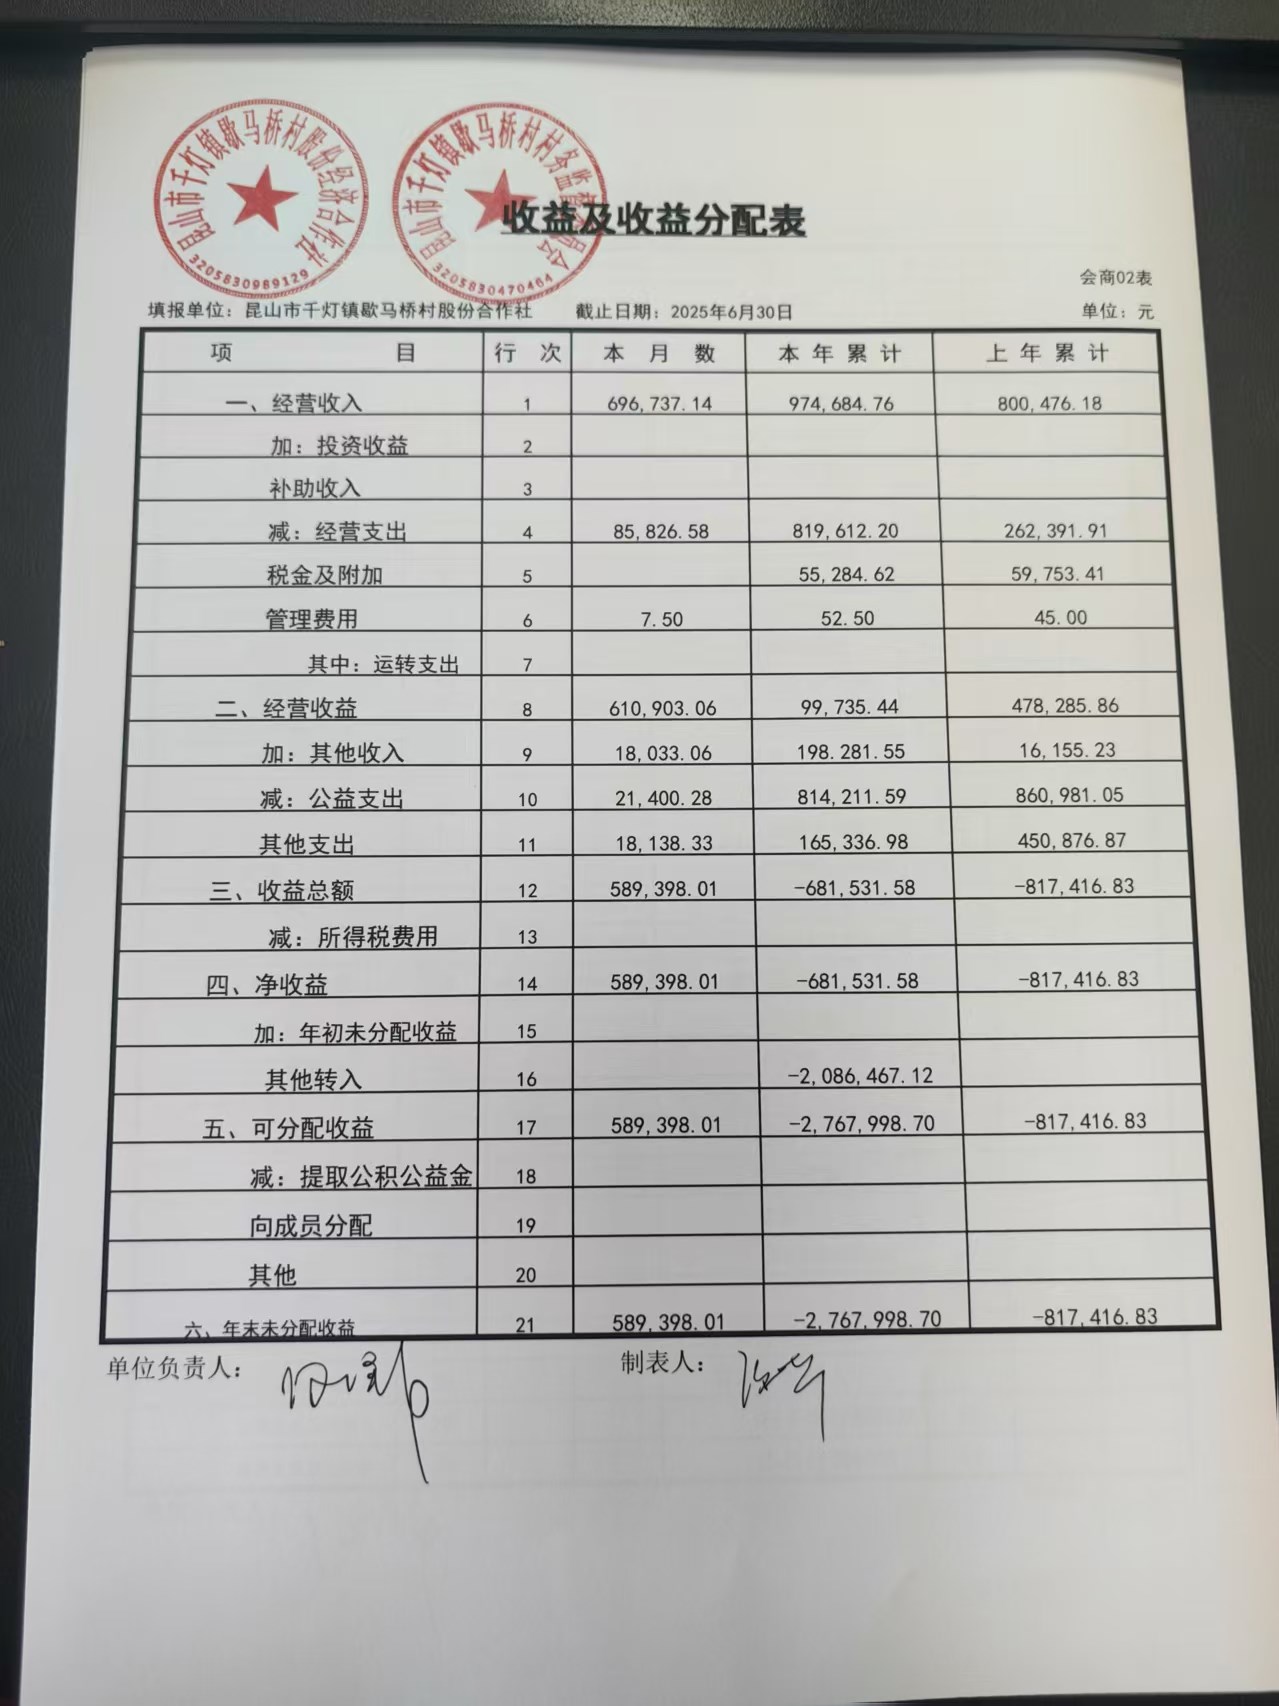 昆山市千灯镇歇马桥村股份经济合作社
3205830989129
昆山市千灯镇歇马桥村村务监督委员会
3205830470464
收益及收益分配表
会商02表
填报单位：昆山市千灯镇歇马桥村股份合作社 截止日期：2025年6月30日 单位：元
项 目 行 次 本 月 数 本 年 累 计 上 年 累 计
一、经营收入 1 696,737.14 974,684.76 800,476.18
加：投资收益 2
补助收入 3
减：经营支出 4 85,826.58 819,612.20 262,391.91
税金及附加 5 55,284.62 59,753.41
管理费用 6 7.50 52.50 45.00
其中：运转支出 7
二、经营收益 8 610,903.06 99,735.44 478,285.86
加：其他收入 9 18,033.06 198.281.55 16,155.23
减：公益支出 10 21,400.28 814,211.59 860,981.05
其他支出 11 18,138.33 165,336.98 450,876.87
三、收益总额 12 589,398.01 -681,531.58 -817,416.83
减：所得税费用 13
四、净收益 14 589,398.01 -681,531.58 -817,416.83
加：年初未分配收益 15
其他转入 16 -2,086,467.12
五、可分配收益 17 589,398.01 -2,767,998.70 -817,416.83
减：提取公积公益金 18
向成员分配 19
其他 20
六、年末未分配收益 21 589,398.01 -2,767,998.70 -817,416.83
单位负责人： 制表人：